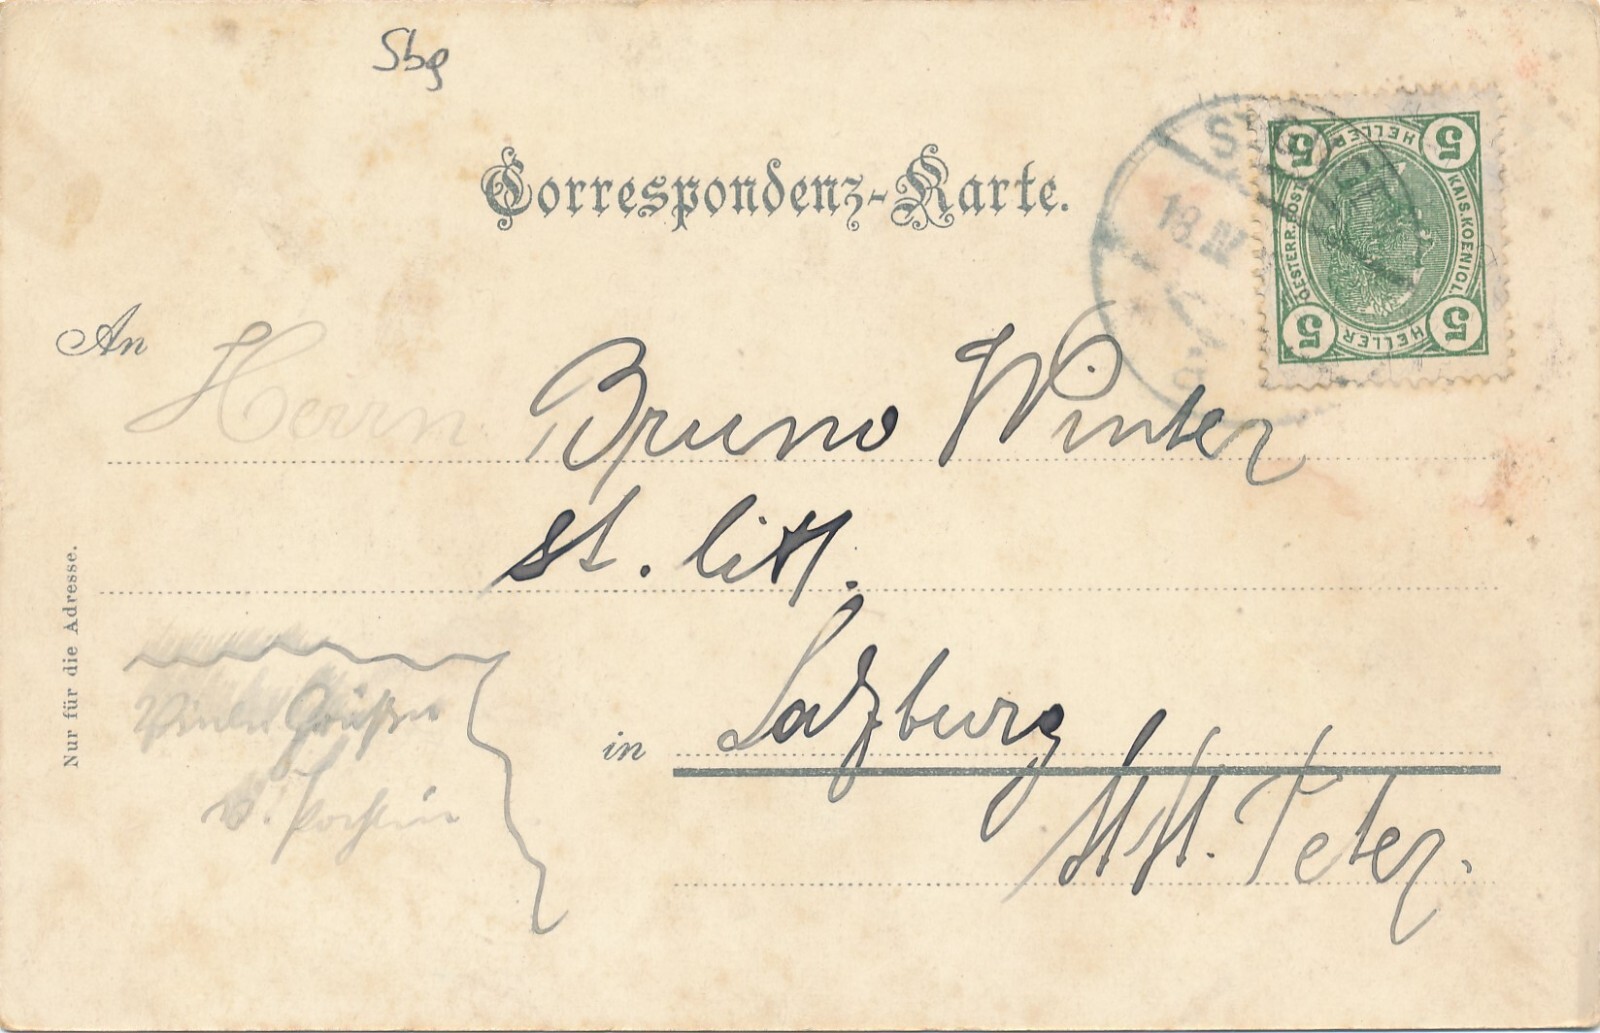 Sbg
Correspondenz-Karte.
ST. G
18. IV
5 HELLER 5
OESTERR. POST
KAIS. KOENIGL.
5 HELLER 5
An Herrn Bruno Winter
st. litt.
Nur für die Adresse.
in Salzburg
St. Peter.
Viele Grüße
v.